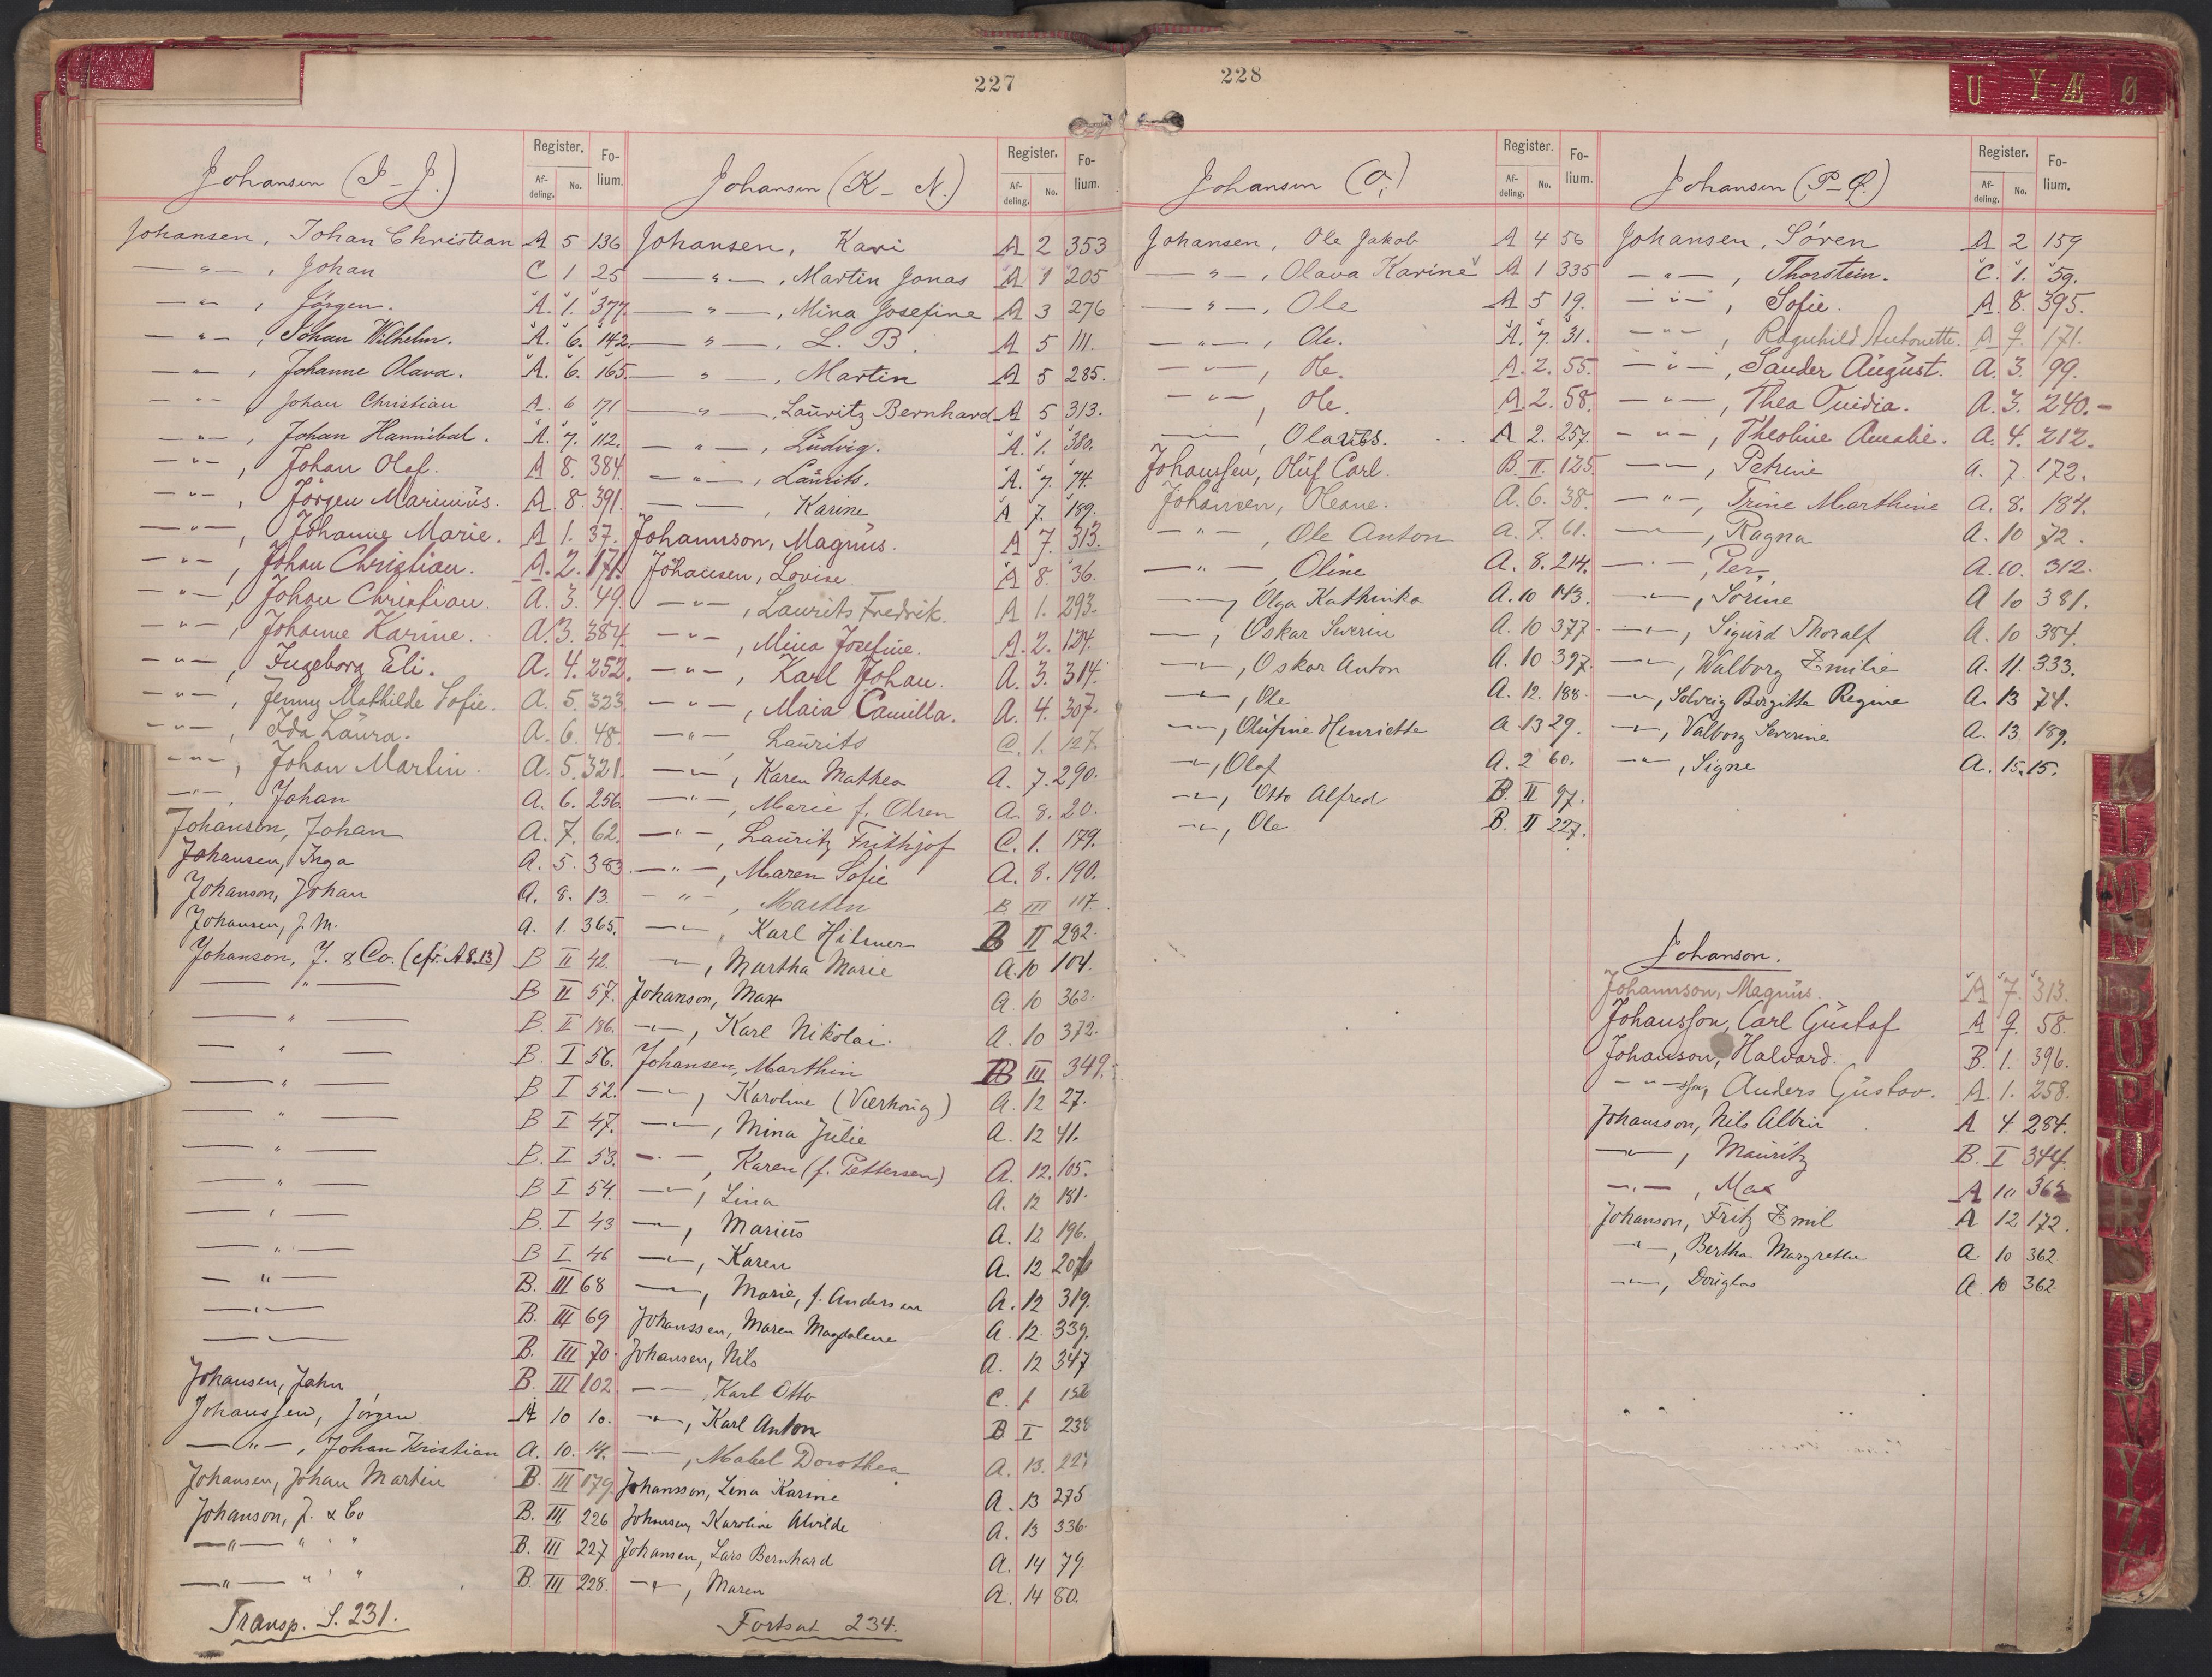 227
Johansen (I-J.)
Register. Folium.
Afdeling. No.
Johansen, Johan Christian A 5 136
—"—, Johan C 1 25
—"—, Jörgen. A. 1. 377.
—"—, Johan Wilhelm. A. 6. 142.
—"—, Johanne Olava. A. 6. 165.
—"—, Johan Christian A. 6 171
—"—, Johan Hannibal. A. 7. 112.
—"—, Johan Olaf. A 8. 384.
—"—, Jörgen Marinius. A. 8. 391.
—"—, Johanne Marie. A 1. 37.
—"—, Johan Christian. A. 2. 171.
—"—, Johan Christian. A. 3. 49.
—"—, Johanne Karine. A. 3. 384.
—"—, Ingeborg Eli. A. 4. 252.
—"—, Jenny Mathilde Sofie. A. 5. 323.
—"—, Ida Laura. A. 6. 48.
—"—, Johan Martin. A. 5. 321.
—"—, Johan A. 6. 256.
Johanson, Johan A. 7. 62.
Johansen, Inga A. 5. 383.
Johanson, Johan A. 8. 13.
Johansen, J. M. A. 1. 365.
Johanson, J. & Co. (cfr. A 8.13) B II 42.
—"— B II 57.
—"— B. I 186.
—"— B. I 56.
—"— B I 52.
—"— B I 47.
—"— B. I 53.
—"— B I 54.
—"— B. I 43
—"— B I 46
—"— B. III 68
—"— B. III 69
—"— B. III 70.
Johansen, Jahn B. III 102
Johanssen, Jörgen A 10 10.
—"—, Johan Kristian A. 10. 14.
Johansen, Johan Martin B. III 179
Johanson, J. & Co B. III 226
—"— " " B. III 227
—"— " " B. III 228.
Transp. S. 231.
Johansen (K-N.)
Register. Folium.
Afdeling. No.
Johansen, Kari A 2 353
—"—, Martin Jonas A 1 205
—"—, Mina Josefine A 3 276
—"—, L. B. A 5 111.
—"—, Martin A 5 285.
—"—, Lauritz Bernhard A 5 313.
—"—, Ludvig. A. 1. 380.
—"—, Laurits. A. 7. 74
—"—, Karine A 7. 189.
Johannson, Magnus. A 7. 313.
Johansen, Lovise. A 8. 36.
—"—, Laurits Fredrik. A 1. 293.
—"—, Mina Josefine. A. 2. 124.
—"—, Karl Johan. A. 3. 314.
—"—, Maia Camilla. A. 4. 307.
—"—, Laurits C. 1. 127.
—"—, Karen Mathea A. 7. 290.
—"—, Marie f. Olsen A. 8. 20.
—"—, Lauritz Frithjof C. 1. 179.
—"—, Maren Sofie A. 8. 190.
—"—, Martin B. III 117.
—"—, Karl Hilmer B II 282.
—"—, Martha Marie A. 10 104.
Johanson, Max A. 10 362.
—"—, Karl Nikolai. A. 10 372.
Johansen, Marthin B III 349.
—"—, Karoline (Værhoug) A. 12 27.
—"—, Mina Julie A. 12 41.
—"—, Karen (f. Pettersen) A. 12. 105.
—"—, Lina A. 12 181.
—"—, Marius A. 12 196.
—"—, Karen A. 12
—"—, Marie, f. Andersen A. 12 319.
Johanssen, Maren Magdalene A. 12. 339.
Johansen, Nils A. 12 347
—"—, Karl Otto C. 1
—"—, Karl Anton B I 238
—"—, Mabel Dorothea A. 13. 227
Johansson, Lina Karine A. 13 275
Johansen, Karoline Alvilde A. 13 336.
Johansen, Lars Bernhard A. 14 79.
—"—, Maren A. 14 80.
Fortsat 234.
228
U Y-Æ Ø
Johansen (O.)
Register. Folium.
Afdeling. No.
Johansen, Ole Jakob A 4 56
—"—, Olava Karine A 1 335
—"—, Ole A 5 19.
—"—, Ole. A. 7. 31.
—"—, Ole. A. 2. 55.
—"—, Ole. A 2. 58.
—"—, Olaus. A 2. 257.
Johanssen, Oluf Carl. B. II. 125
Johansen, Oleane. A. 6. 38.
—"—, Ole Anton A. 7. 61.
—"—, Oline A. 8. 214.
—"—, Olga Kathinka A. 10 143.
—"—, Oskar Severin A. 10 377.
—"—, Oskar Anton A. 10 397.
—"—, Ole A. 12. 188.
—"—, Olufine Henriette A 13 29.
—"—, Olaf A. 2 60.
—"—, Otto Alfred B. II 97.
—"—, Ole B. II 227.
Johansen (P-Ø.)
Register. Folium.
Afdeling. No.
Johansen, Sören A 2 159
—"—, Thorstein. C. 1. 59.
—"—, Sofie. A. 8. 395.
—"—, Ragnhild Antonette. A 9. 171.
—"—, Sander August. A. 3. 99.
—"—, Thea Tuidia. A. 3. 240.-
—"—, Theoline Amalie. A. 4. 212.
—"—, Petrine A. 7 172.
—"—, Trine Marthine A. 8. 184.
—"—, Ragna A. 10 72.
—"—, Per A. 10. 312.
—"—, Sörine A 10 381.
—"—, Sigurd Thoralf A. 10 384.
—"—, Walborg Emilie A. 11. 333.
—"—, Solveig Birgitte Regine A. 13 74.
—"—, Valborg Severine A. 13 189.
—"—, Signe A. 15. 15.
Johanson.
Johannson, Magnus. A 7. 313.
Johansson, Carl Gustaf A 9. 58.
Johanson, Halvard. B. 1. 396.
—"— Anders Gustav. A. 1. 258.
Johansson, Nils Albin A 4 284.
—"—, Mauritz B. I 344.
—"—, Max A 10 362
Johanson, Fritz Emil A 12 172.
—"—, Bertha Margrethe A. 10 362.
—"—, Douglas A. 10 362.
K L M N U P U R T U V Y Z